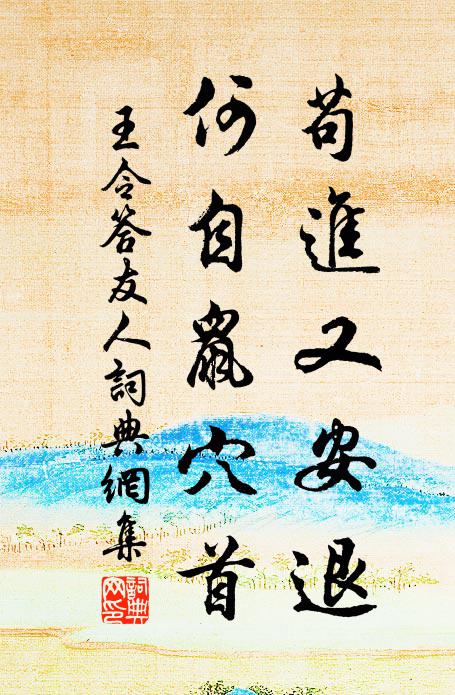 苟進又安退
何自鼠穴首
王令答友人詞典網集
詞典網印